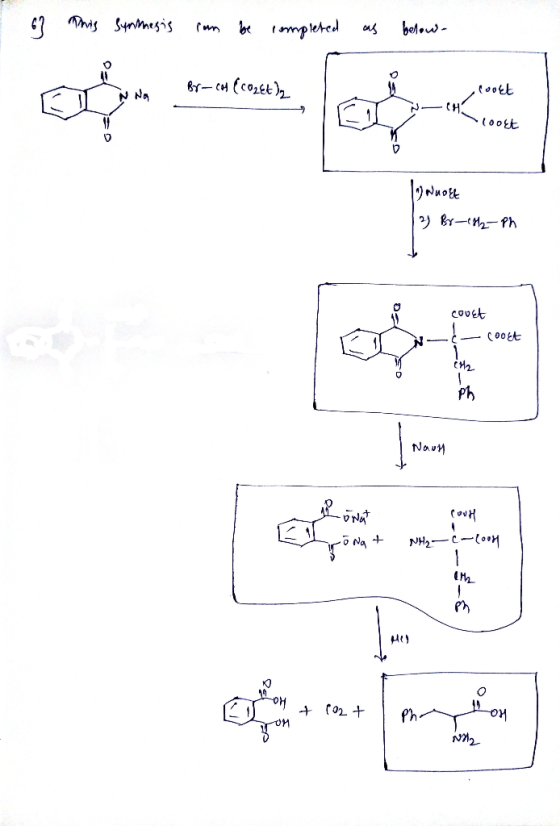 6} This Synthesis can be completed as below-
O
N Na
O
Br-CH(CO2Et)2
O
N-CH
COOEt
COOEt
O
1) NaOEt
2) Br-CH2-Ph
O
COOEt
N-C-COOEt
O
CH2
Ph
NaOH
O
ŌNa+
ŌNa +
O
COOH
NH2-C-COOH
CH2
Ph
HCl
O
OH
OH
O
+ CO2 +
O
Ph
OH
NH2